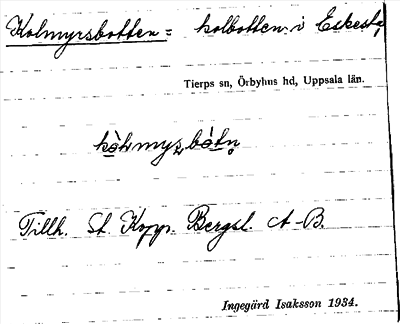 Kolmyrsbotten = kolbotten i Eskesta,
Tierps sn, Örbyhus hd, Uppsala län.
Tillh. St. Kopp. Bergsl. A-B.
Ingegärd Isaksson 1934.